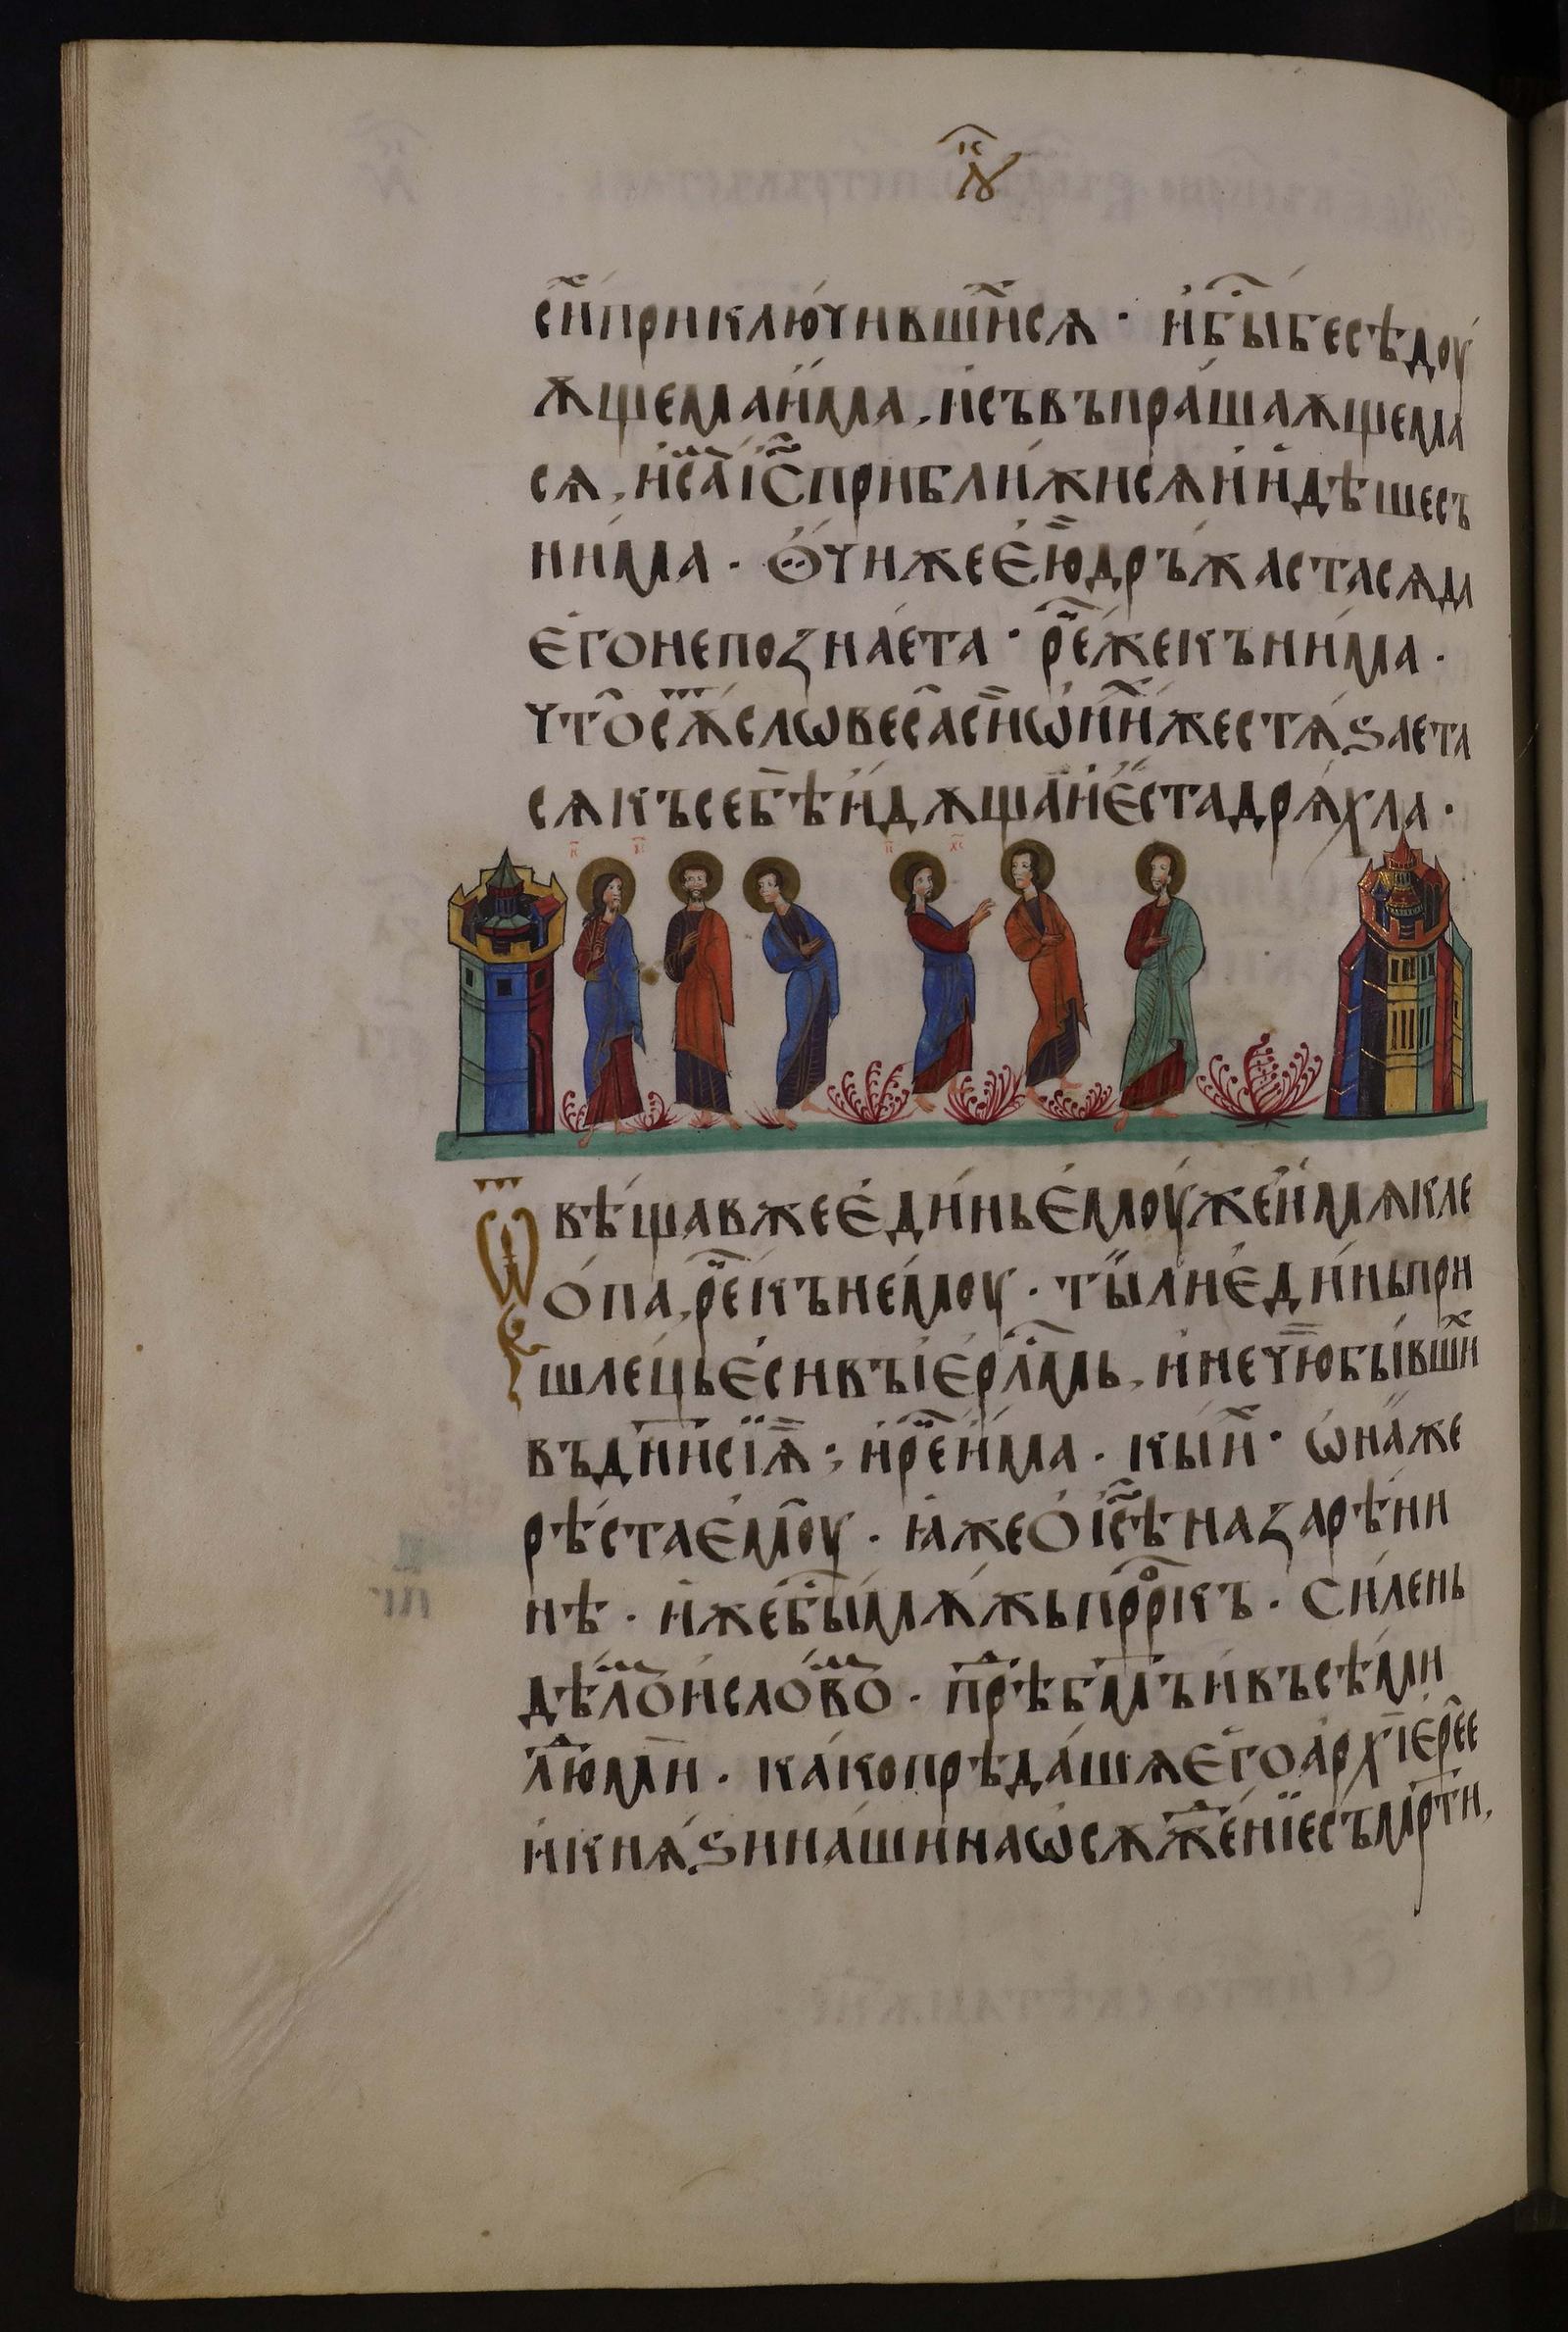 лꙋ҇к
си҇хприключившⷯисѧ · и҆быⷭ҇бесѣдоу
ѫщемаи́ма , и҆съвъпра́шаѫщема
сѧ , и҆саⷨі҆с҃прибли́жисѧи҆и҆дѣ́шесъ
ни́ма · О҆́чижеею҆̀дръ́жастасѧда
е҆гонепозна́ета · реⷱ҇жекъни́ма ·
чтоⷭ҇ѫтсловеса҆сиⷯѡ҆ни́хжестѧ́ꙁаета
сѧкъсебѣ̀и҆дѫща̀и҆е҆́стадрѧ́хла ·
іс хс іс хс
Ѿвѣща́вжееди́ньему́жеи҆́мѧкле
о́па , реⷱ҇къне́моу · ты́лиеди́ньпри
шле́цьеси́въі҆ерⷭ҇лмь , и҆нечю̀бы́вшиⷯ
въдн҃исїѧ̀ ; и҆реⷱ҇и҆́ма · кы́иⷯ · ѡ҆на́же
рѣ́стаемоу̀ · ꙗ҆́жео҆і҆с҃ѣназарѣ́ни
нѣ · и҆́жебыⷭ҇мѫ́жьпррⷪ҇къ · си́лень
дѣлоⷨи҆словоⷨ · прⷣѣбм҃ъи҆въсѣ́ми
люⷣми · ка́копрѣда́шѧего̀архїере́е
и҆кнѧ́ꙃина́шинаѡ҆сѫжⷣе́нїесъмрти ,